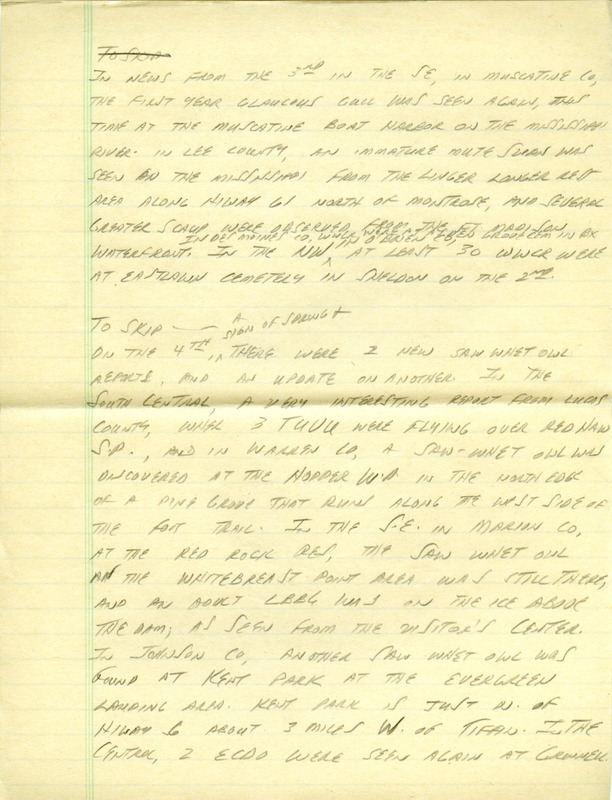 To Skip
In news from the 3rd in the SE, in Muscatine Co,
the first year Glaucous Gull was seen again, this
time at the Muscatine Boat Harbor on the Mississippi
River. In Lee County, an immature Mute Swan was
seen on the Mississippi from the Linger Longer rest
area along Hiway 61 north of Montrose, and several
Greater Scaup were observed from the Ft Madison
In Des Moines Co, WWCR were at Grace Cem in BX
waterfront. In the NW, in O'Brien Co, at least 30 WWCR were
at Eastlawn Cemetery in Sheldon on the 2nd.
To Skip — A sign of spring &
On the 4th, there were 2 new Saw whet owl
reports, and an update on another. In the
South Central, a very interesting report from Lucas
County, when 3 TUVU were flying over Red Haw
S.P., and in Warren Co, a Saw-whet owl was
discovered at the Hopper W.A. in the north edge
of a pine grove that runs along the west side of
the foot trail. In the S.E. in Marion Co,
at the Red Rock Res, the Saw whet owl
in the Whitebreast Point area was still there,
and an adult LBBG was on the ice above
the dam, as seen from the visitor's center.
In Johnson Co, another Saw whet owl was
found at Kent Park at the Evergreen
Landing area. Kent Park is just N. of
Hiway 6 about 3 miles W. of Tiffin. In the
Central, 2 ECDO were seen again at Grinnell.